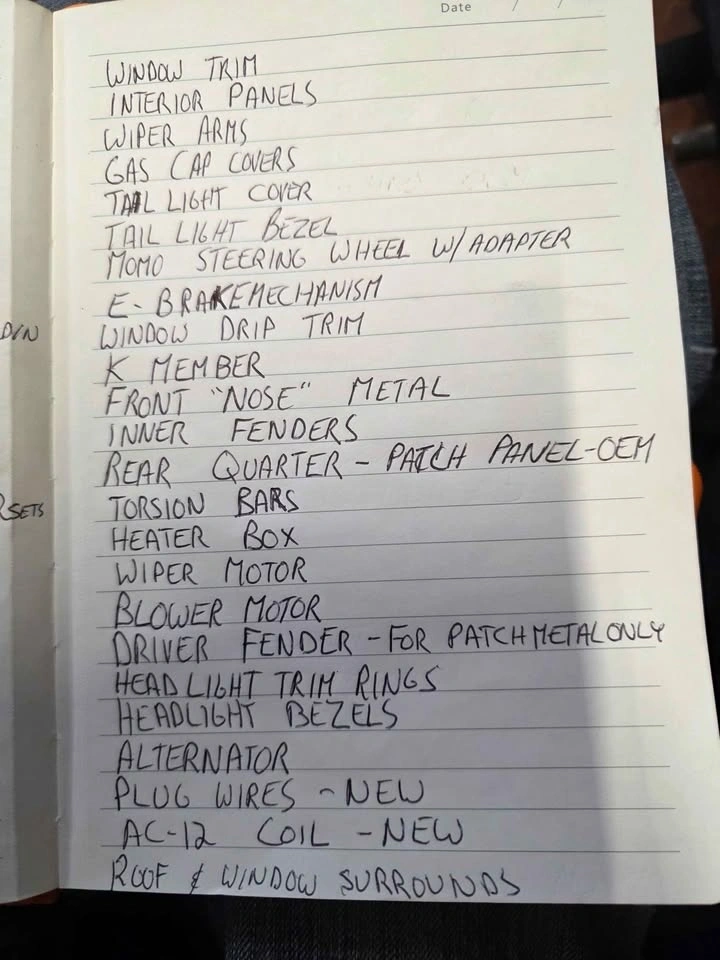 Date / /
WINDOW TRIM
INTERIOR PANELS
WIPER ARMS
GAS CAP COVERS
TAIL LIGHT COVER
TAIL LIGHT BEZEL
MOMO STEERING WHEEL W/ADAPTER
E-BRAKE MECHANISM
WINDOW DRIP TRIM
K MEMBER
FRONT "NOSE" METAL
INNER FENDERS
REAR QUARTER - PATCH PANEL-OEM
TORSION BARS
HEATER BOX
WIPER MOTOR
BLOWER MOTOR
DRIVER FENDER - FOR PATCH METAL ONLY
HEADLIGHT TRIM RINGS
HEADLIGHT BEZELS
ALTERNATOR
PLUG WIRES - NEW
AC-12 COIL - NEW
ROOF & WINDOW SURROUNDS